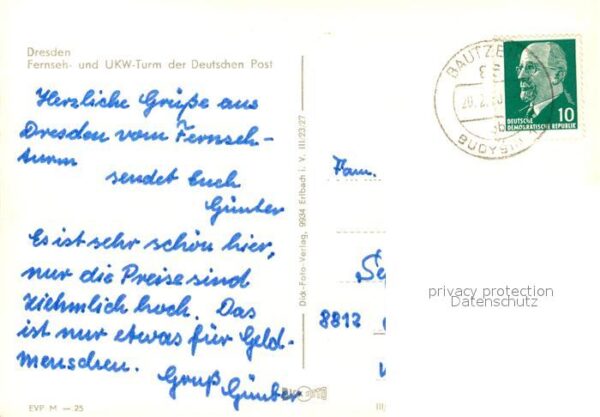 Dresden
Fernseh- und UKW-Turm der Deutschen Post
Herzliche Grüße aus
Dresden vom Fernseh-
turm
sendet Euch
Günter
Es ist sehr schön hier,
nur die Preise sind
ziehmlich hoch. Das
ist nur etwas für Geld-
menschen.
Gruß Günter
EVP M — 25
Dick-Foto-Verlag, 9934 Erlbach i. V. III/23/27
BAUTZE
BUDYŠI
10
DEUTSCHE
DEMOKRATISCHE REPUBLIK
Fam.
8812
privacy protection
Datenschutz